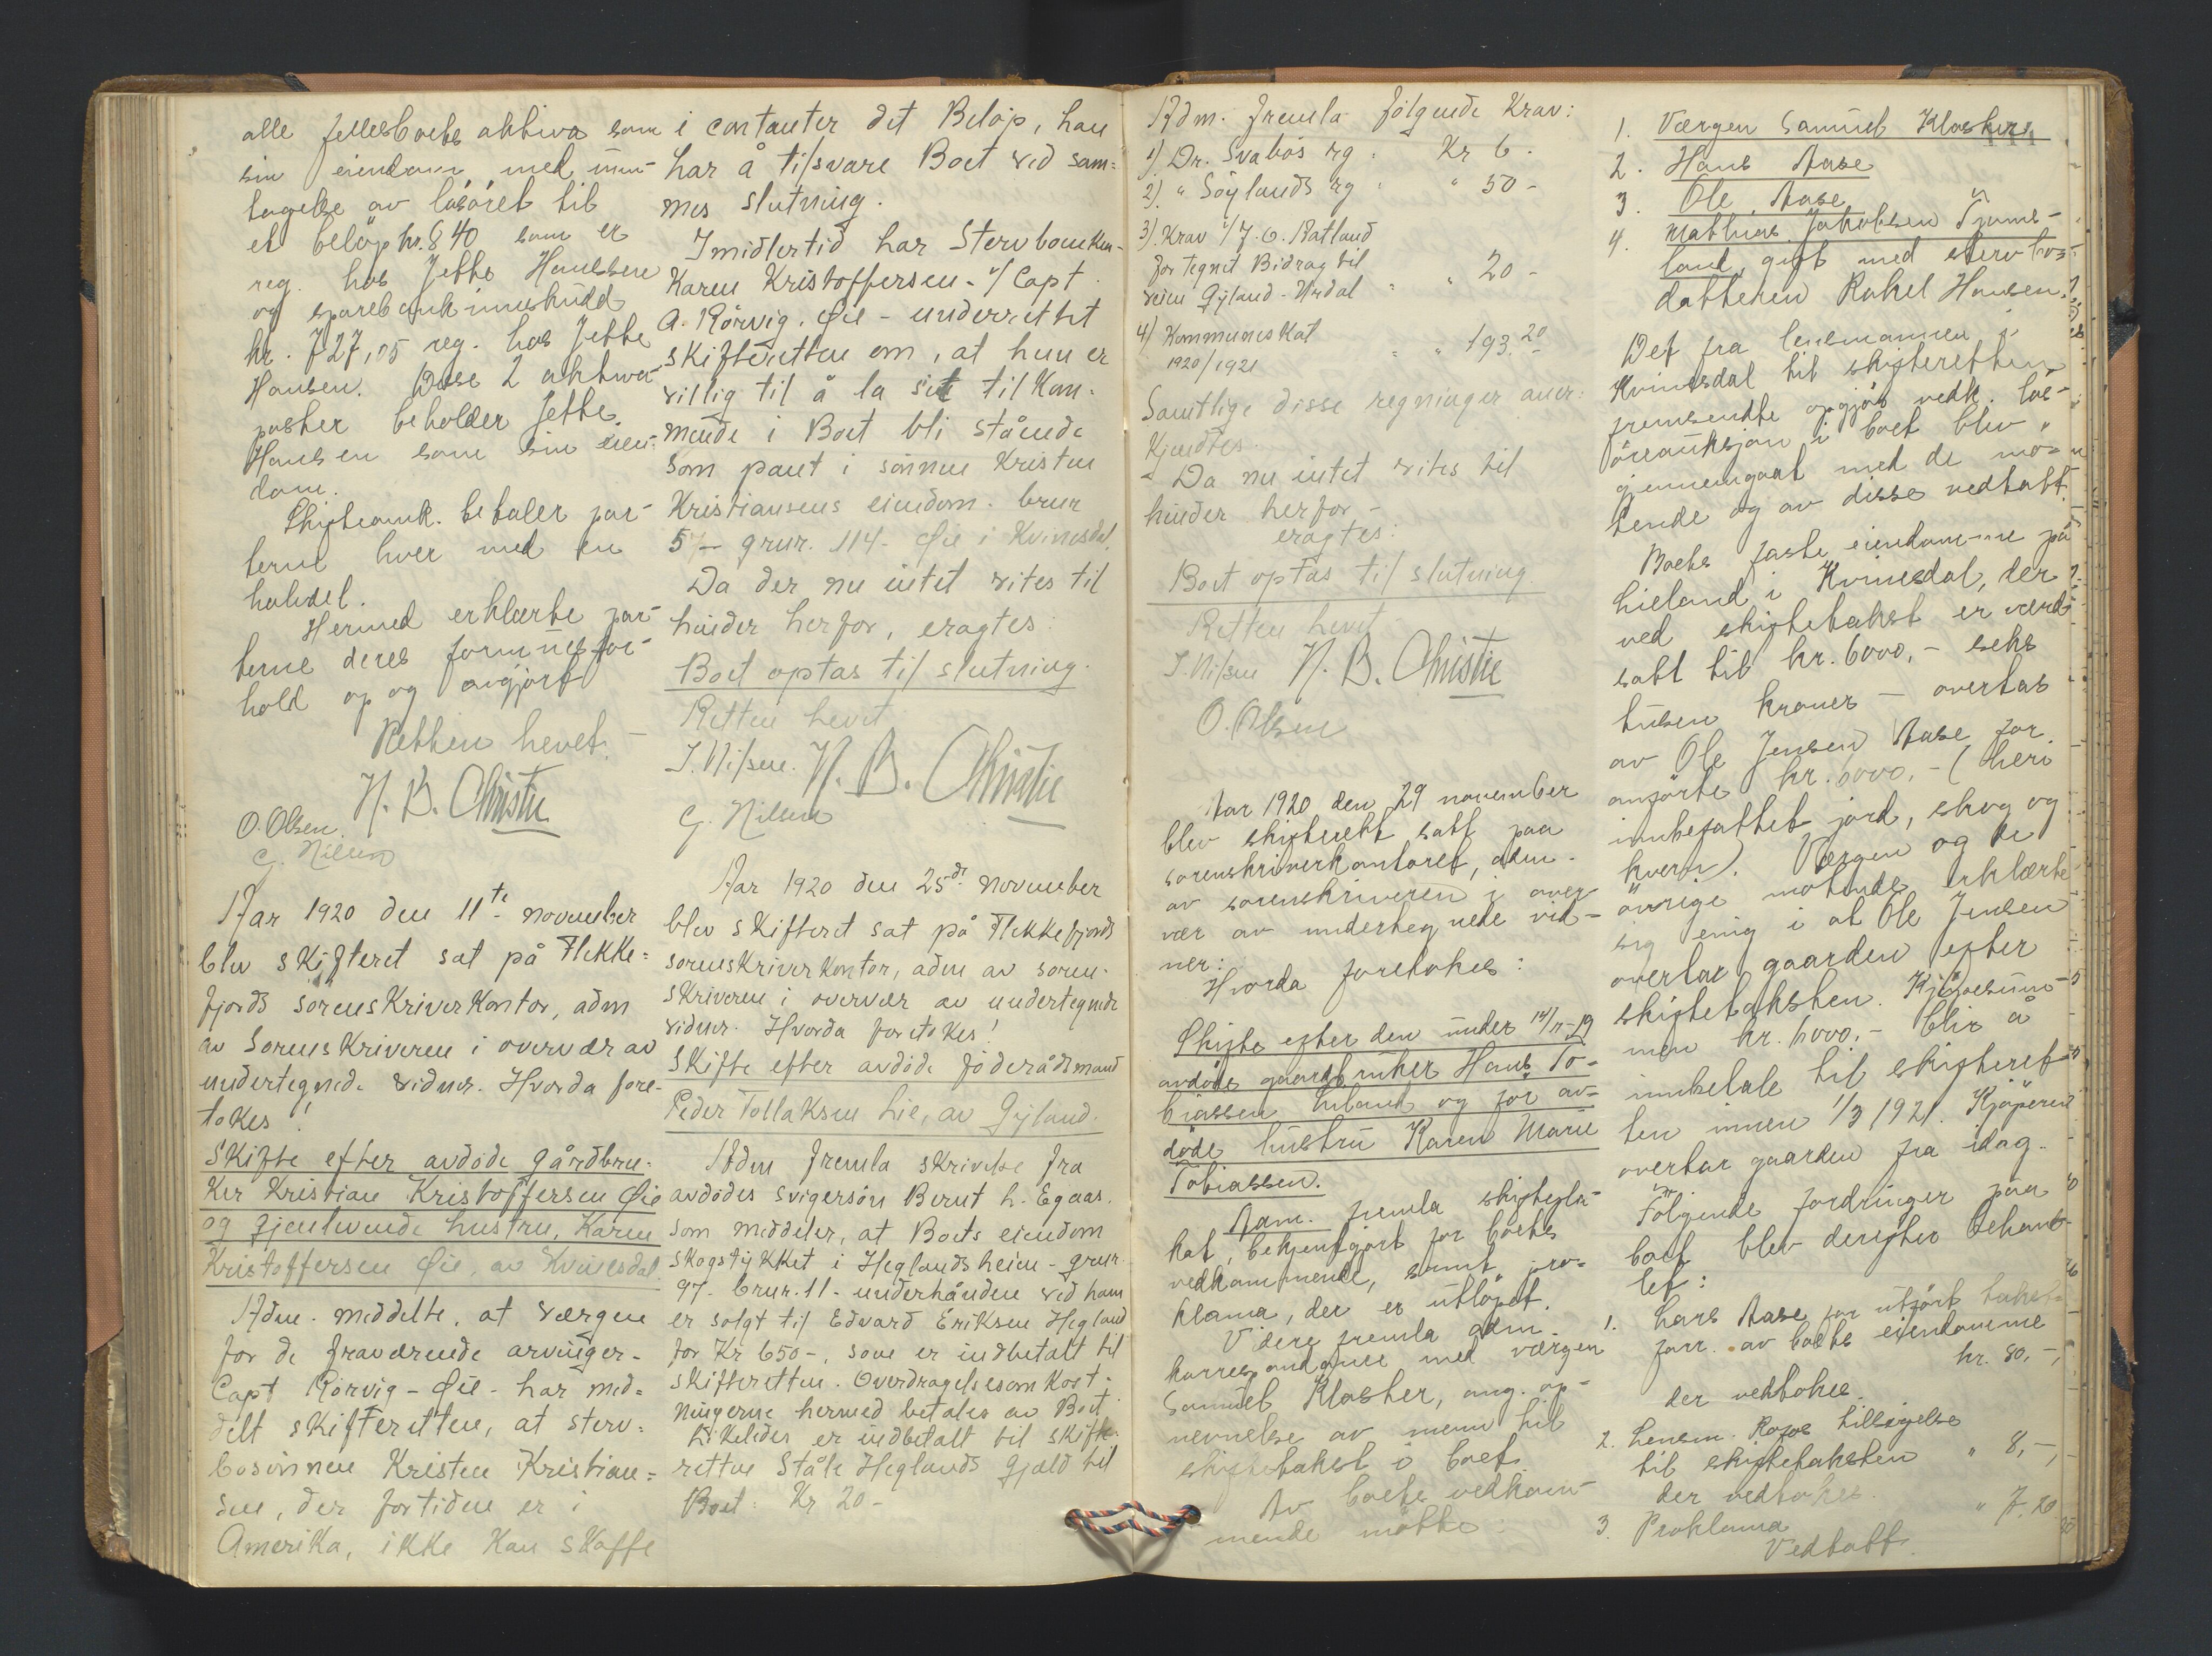 alle fellesboets aktiva som
sin eiendom med unn-
tagelse av løsøret til
et beløp kr. 840 som er
reg. hos Jette Hanssen
og sparebankinnskudd
kr. 727,05 reg. hos Jette
Hansen. Disse 2 aktiva-
poster beholder Jette
Hansen som sin eien-
dom.
Skifteomk. betaler par-
terne hver med en
halvdel.
Hermed erklærte par-
terne deres formuesfor-
hold op og avgjort
Retten hevet. –
N. B. Christie
O. Olsen.
G. Nilsen
Aar 1920 den 11te november
blev skifteret sat på Flekke=
fjords sorenskriverkontor, adm
av Sorenskriveren i overvær av
undertegnede vidner. Hvorda fore-
tokes!
Skifte efter avdøde gårdbru-
ker Kristian Kristoffersen Øie
og gjenlevende hustru, Karen
Kristoffersen Øie, av Kvinesdal.
Adm. meddelte, at værgen
for de fraværende arvinger-
Capt Rörvig – Øie – har med=
delt skifteretten, at sterv=
bosønnen Kristen Kristian=
sen, der for tiden er i
Amerika, ikke kan skaffe
i contanter det Beløp, han
har å tilsvare Boet ved sam=
mes slutning.
Imidlertid har Stervboenken-
Karen Kristoffersen - v/ Capt.
A. Rörvig. Øie – underrettet
skifteretten om, at hun er
villig til å la sit tilkom-
mende i Boet bli stående
som pant i sønnen Kristen
Kristiansens eiendom. brnr
5 – grnr. 114 – Øie i Kvinesdal.
Da der nu intet vites til
hinder herfor, eragtes:
Boet optas til slutning.
Retten hevet
J. Nilsen. N. B. Christie
G. Nilsen
Aar 1920 den 25de november
blev skifteret sat på Flekkefjords
sorenskriverkontor, adm av soren-
skriveren i overvær av undertegnede
vidner. Hvorda foretokes!
Skifte efter avdøde föderådsmand
Peder Tollaksen Lie, av Gyland.
Adm fremla skrivelse fra
avdødes svigersön Bernt L. Egaas.
som meddeler, at Boets eiendom
skogstykket i Heglandsheien – grnr.
97 – brnr. 11 – underhånden ved ham
er solgt til Edvard Eriksen Hegland
for Kr 650 –, som er indbetalt til
skifteretten. Overdragelsesomkost-
ningerne hermed betales av Boet
Likeledes er indbetalt til skifte-
retten Ståle Heglands gjæld til
Boet: Kr 20 –
Adm. fremla følgende Krav:
1). Dr. Svabös rg. Kr 6 –
2). " Söylands rg " 50 –
3). Krav v/ J. O. Natland
for tegnet Bidrag til
veien Gyland – Urdal " 20 –
4) Kommuneskat
1920/1921 " 193.20
Samtlige disse regninger aner-
kjendtes.
Da nu intet vites til
hinder herfor –
eragtes:
Boet optas til slutning
Retten hevet
J. Nilsen N. B. Christie
O. Olsen
Aar 1920 den 29 november
blev skifterett satt paa
sorenskriverkontoret, adm.
av sorenskriveren i over-
vær av undertegnede vid-
ner:
Hvorda foretokes:
Skifte efter den under 14/11-19
avdøde gaardbruker Hans To-
biassen Hieland og før av-
døde hustru Karen Marie
Tobiassen.
Adm. fremla skiftepla-
kat, bekjentgjort for boets
vedkommende, samt pro-
klama, der er utløpet.
Videre fremla adm.
korrespondance med værgen
Samuel Kloster, ang. op-
nevnelse av menn til
skiftetakst i boet.
Av boets vedkom-
mende møtte:
1. Værgen Samuel Kloster
2. Hans Aase
3. Ole Aase
4. Mathias Jakobsen Tjoms-
land, gift med stervbos-
datteren Rakel Hansen.
Det fra lensmannen i
Kvinesdal til skifteretten
fremsendte opgjør vedk. løs-
øreauksjon i boet blev
gjennemgaat med de mø-
tende og av disse vedtatt.
Boets faste eiendomme på
hieland i Kvinesdal, der
ved skiftetakst er verd-
satt til kr. 6000,- seks
tusen kroner – overtas
av Ole Jensen Aase for
anførte kr. 6000,- (heri
innbefattet jord, skog og
kvern). Værgen og de
øvrige møtende erklærte
sig enig i at Ole Jensen
overtar gaarden efter
skiftetaksten. Kjøpesum-
men kr. 6000,- blir å
innbetale til skifteret-
ten innen 1/3 1921. Kjøperen
overtar gaarden fra idag.
Følgende fordringer paa
boet blev derefter behand-
let:
1. Lars Aase for utført takst-
forr. av boets eiendomme
kr. 80,-,
der vedtokes.
2. Lensm. Rafos tilsigelse
til skiftetaksten " 8,-,
der vedtokes.
3. Proklama " 7.20
Vedtatt.